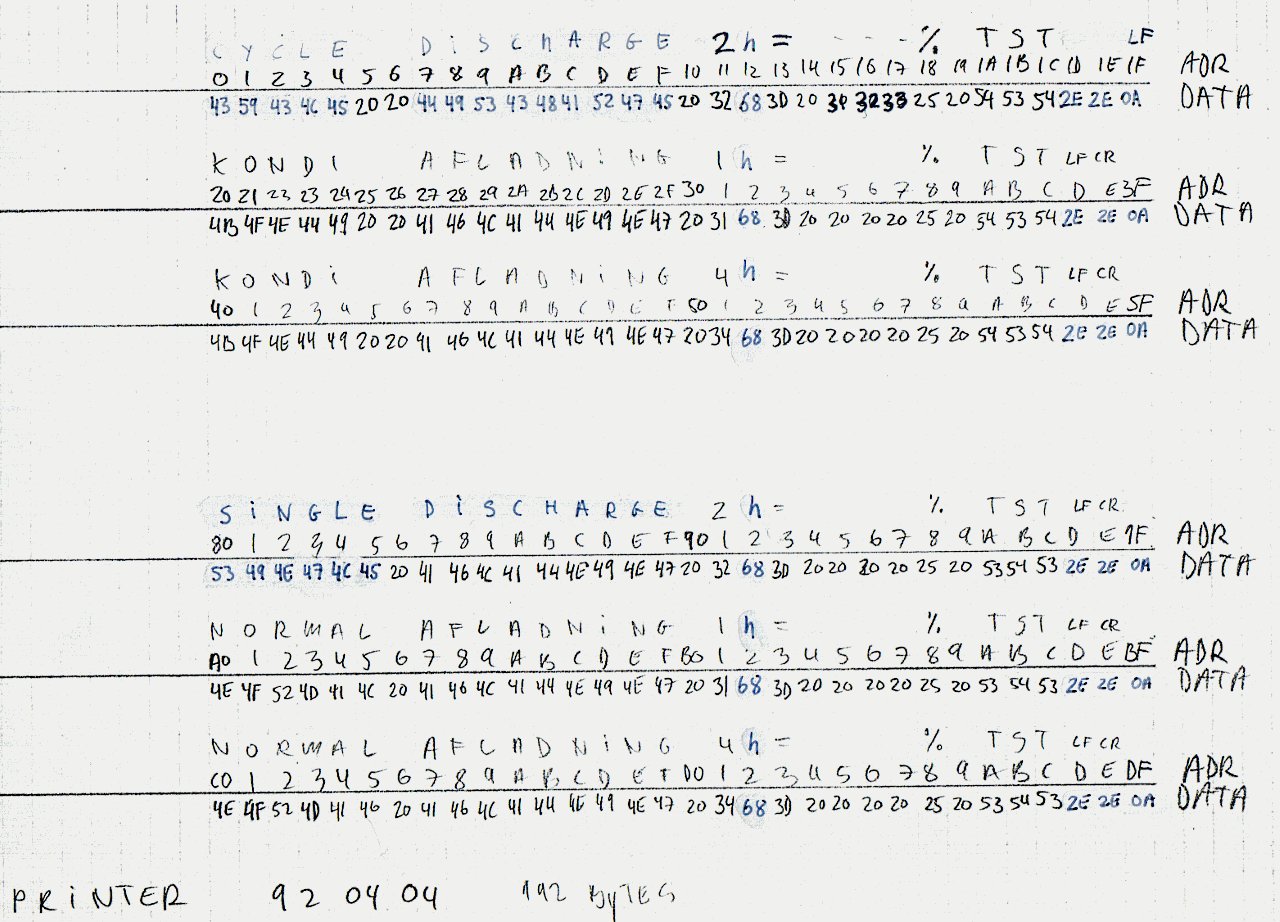 CYCLE DiSChARGE 2h = - - - % TST LF
0 1 2 3 4 5 6 7 8 9 A B C D E F 10 11 12 13 14 15 16 17 18 19 1A 1B 1C 1D 1E 1F ADR
43 59 43 4C 45 20 20 44 49 53 43 48 41 52 47 45 20 32 68 3D 20 3D 32 33 25 20 54 53 54 2E 2E 0A DATA
KONDI AFLADNiNG 1h = % TST LF CR
20 21 22 23 24 25 26 27 28 29 2A 2B 2C 2D 2E 2F 30 1 2 3 4 5 6 7 8 9 A B C D E 3F ADR
4B 4F 4E 44 49 20 20 41 46 4C 41 44 4E 49 4E 47 20 31 68 3D 20 20 20 20 25 20 54 53 54 2E 2E 0A DATA
KONDi AFLADNiNG 4h = % TST LF CR
40 1 2 3 4 5 6 7 8 9 A B C D E F 50 1 2 3 4 5 6 7 8 9 A B C D E 5F ADR
4B 4F 4E 44 49 20 20 41 46 4C 41 44 4E 49 4E 47 20 34 68 3D 20 20 20 20 25 20 54 53 54 2E 2E 0A DATA
SiNGLE DiSCHARGE 2h = % TST LF CR
80 1 2 3 4 5 6 7 8 9 A B C D E F 90 1 2 3 4 5 6 7 8 9 A B C D E 9F ADR
53 49 4E 47 4C 45 20 41 46 4C 41 44 4E 49 4E 47 20 32 68 3D 20 20 20 20 25 20 53 54 53 2E 2E 0A DATA
NORMAL AFLADNiNG 1h = % TST LF CR
A0 1 2 3 4 5 6 7 8 9 A B C D E F B0 1 2 3 4 5 6 7 8 9 A B C D E BF ADR
4E 4F 52 4D 41 4C 20 41 46 4C 41 44 4E 49 4E 47 20 31 68 3D 20 20 20 20 25 20 53 54 53 2E 2E 0A DATA
NORMAL AFLADNiNG 4h = % TST LF CR
C0 1 2 3 4 5 6 7 8 9 A B C D E F D0 1 2 3 4 5 6 7 8 9 A B C D E DF ADR
4E 4F 52 4D 41 46 20 41 46 4C 41 44 4E 49 4E 47 20 34 68 3D 20 20 20 20 25 20 53 54 53 2E 2E 0A DATA
PRiNTER 92 04 04 192 BYTES